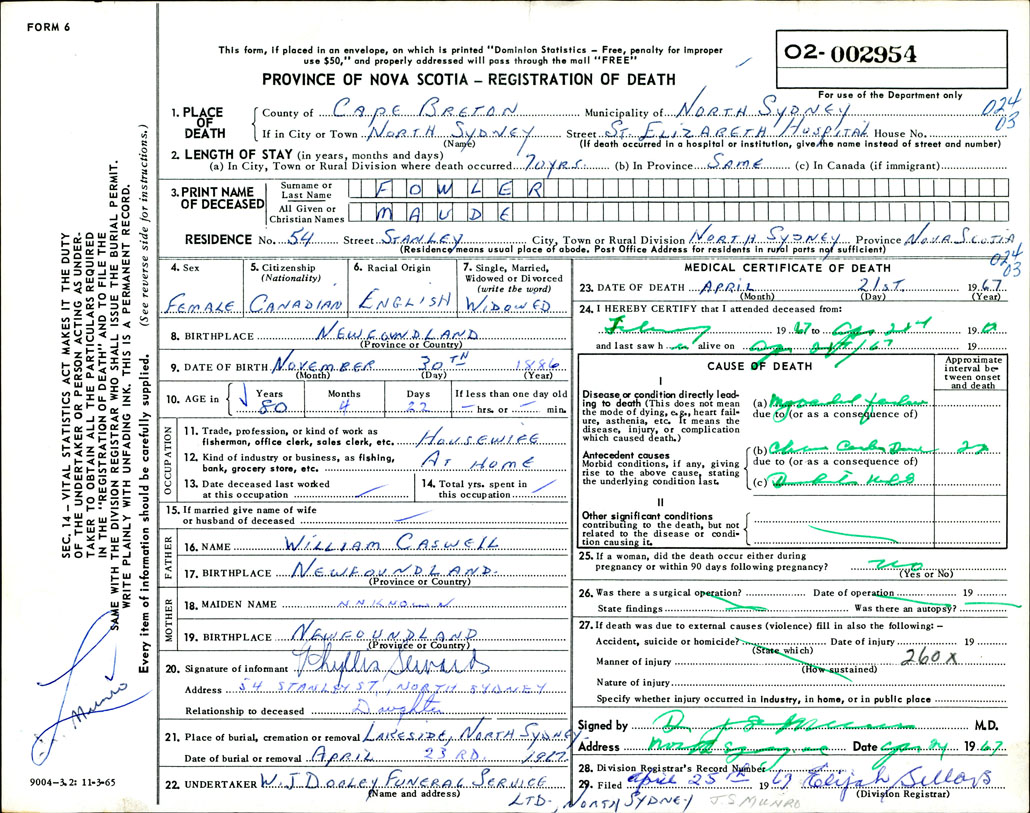 FORM 6
This form, if placed in an envelope, on which is printed "Dominion Statistics – Free, penalty for improper
use $50," and properly addressed will pass through the mail "FREE"
PROVINCE OF NOVA SCOTIA – REGISTRATION OF DEATH
02-002954
For use of the Department only
024
03
1. PLACE OF DEATH
County of CAPE BRETON Municipality of NORTH SYDNEY
If in City or Town NORTH SYDNEY Street ST. ELIZABETH HOSPITAL House No.
(Name) (If death occurred in a hospital or institution, give the name instead of street and number)
2. LENGTH OF STAY (in years, months and days)
(a) In City, Town or Rural Division where death occurred 70 YRS. (b) In Province SAME (c) In Canada (if immigrant)
3. PRINT NAME OF DECEASED
Surname or Last Name FOWLER
All Given or Christian Names MAUDE
RESIDENCE No. 54 Street STANLEY City, Town or Rural Division NORTH SYDNEY Province NOVA SCOTIA
(Residence means usual place of abode. Post Office Address for residents in rural parts not sufficient)
024
03
4. Sex
FEMALE
5. Citizenship
(Nationality)
CANADIAN
6. Racial Origin
ENGLISH
7. Single, Married,
Widowed or Divorced
(write the word)
WIDOWED
8. BIRTHPLACE NEWFOUNDLAND
(Province or Country)
9. DATE OF BIRTH NOVEMBER 30TH 1886
(Month) (Day) (Year)
10. AGE in
Years Months Days If less than one day old
80 4 22 – hrs. or – min.
OCCUPATION
11. Trade, profession, or kind of work as
fisherman, office clerk, sales clerk, etc. HOUSEWIFE
12. Kind of industry or business, as fishing,
bank, grocery store, etc. AT HOME
13. Date deceased last worked
at this occupation
14. Total yrs. spent in
this occupation
15. If married give name of wife
or husband of deceased
FATHER
16. NAME WILLIAM CASWELL
17. BIRTHPLACE NEWFOUNDLAND.
(Province or Country)
MOTHER
18. MAIDEN NAME UNKNOWN
19. BIRTHPLACE NEWFOUNDLAND
(Province or Country)
20. Signature of informant Phyllis Seward
Address 54 STANLEY ST., NORTH SYDNEY
Relationship to deceased Daughter
21. Place of burial, cremation or removal LAKESIDE, NORTH SYDNEY
Date of burial or removal APRIL 23RD. 1967.
22. UNDERTAKER W. J. DOOLEY FUNERAL SERVICE
(Name and address)
LTD., NORTH SYDNEY J.S MUNRO
MEDICAL CERTIFICATE OF DEATH
23. DATE OF DEATH APRIL 21ST. 1967
(Month) (Day) (Year)
24. I HEREBY CERTIFY that I attended deceased from:
February 1967 to 19
and last saw her alive on 19
CAUSE OF DEATH
Approximate
interval be-
tween onset
and death
I
Disease or condition directly lead-
ing to death (This does not mean
the mode of dying, e.g., heart fail-
ure, asthenia, etc. It means the
disease, injury, or complication
which caused death.)
(a) Myocardial
due to (or as a consequence of)
Antecedent causes
Morbid conditions, if any, giving
rise to the above cause, stating
the underlying condition last.
(b)
due to (or as a consequence of)
(c)
II
Other significant conditions
contributing to the death, but not
related to the disease or condi-
tion causing it.
25. If a woman, did the death occur either during
pregnancy or within 90 days following pregnancy? no
(Yes or No)
26. Was there a surgical operation? Date of operation 19
State findings Was there an autopsy?
27. If death was due to external causes (violence) fill in also the following: –
Accident, suicide or homicide? Date of injury 19
(State which)
Manner of injury 260x
(How sustained)
Nature of injury
Specify whether injury occurred in industry, in home, or in public place
Signed by M.D.
Address Date 1967.
28. Division Registrar's Record Number
29. Filed April 25th 1967 Elijah Sellars
(Division Registrar)
SEC. 14 – VITAL STATISTICS ACT MAKES IT THE DUTY
OF THE UNDERTAKER OR PERSON ACTING AS UNDER-
TAKER TO OBTAIN ALL THE PARTICULARS REQUIRED
IN THE "REGISTRATION OF DEATH" AND TO FILE THE
SAME WITH THE DIVISION REGISTRAR WHO SHALL ISSUE THE BURIAL PERMIT.
WRITE PLAINLY WITH UNFADING INK. THIS IS A PERMANENT RECORD.
Every item of information should be carefully supplied. (See reverse side for instructions.)
Munro
9004-3.2: 11-3-65